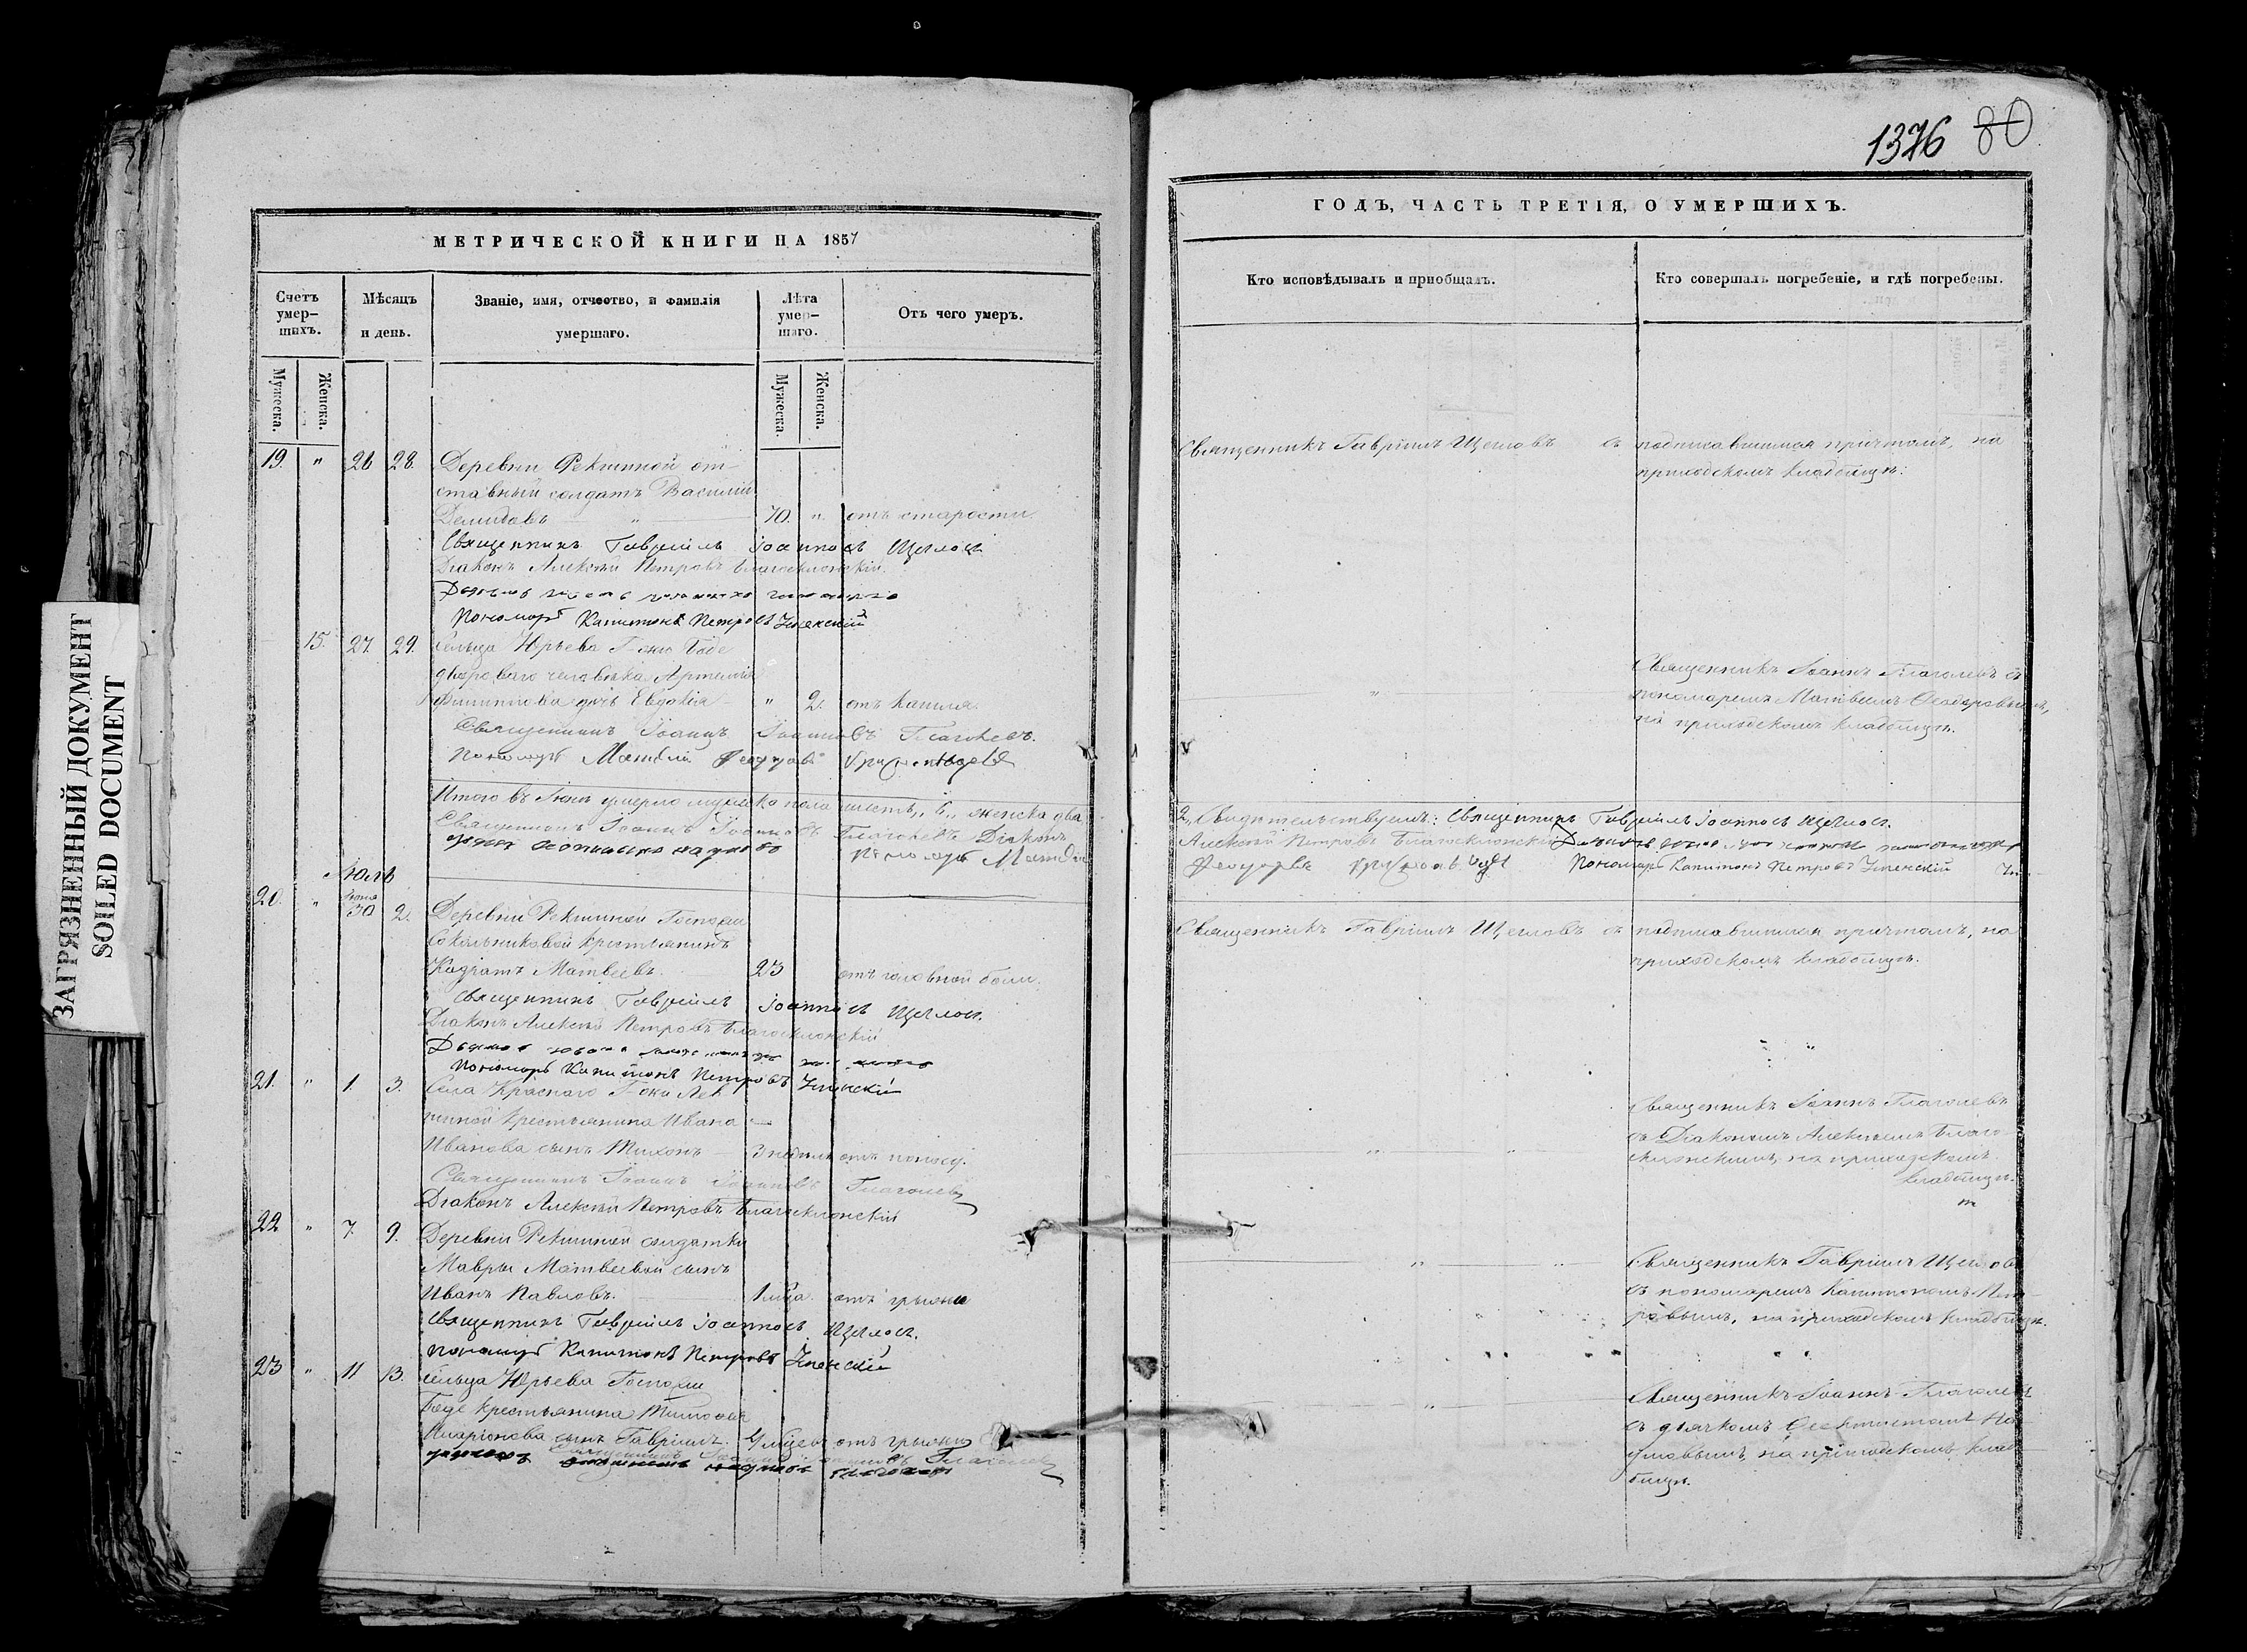 1376 80
ЗАГРЯЗНЕННЫЙ ДОКУМЕНТ
SOILED DOCUMENT
МЕТРИЧЕСКОЙ КНИГИ НА 1857
Счетъ умер-
шихъ.
Мужеска.
Женска.
Мѣсяцъ
и день.
Званіе, имя, отчество, и фамилія
умершаго.
Лѣта
умер-
шаго.
Мужеска.
Женска.
Отъ чего умеръ.
19. " 26 28. Деревни Рекшиной от-
ставный солдатъ Василій
Демидовъ " 70. " отъ старости.
Священникъ Гавріилъ Іоанновъ Щегловъ
Діаконъ Алексѣй Петровъ Благосклонскій.
Пономарь Капитонъ Петровъ
15. 27. 29. Сельца Юрьева Г-жи Боде
двороваго человѣка Артемія
Филиппова дочь Евдокія " 2. отъ кашля.
Священникъ Іоаннъ Іоанновъ Глаголевъ.
Пономарь Матвій Феодоровъ
Итого въ Іюнѣ умерло мужеска пола шесть, 6, женска два
Священникъ Іоаннъ Іоанновъ Глаголевъ Діаконъ
Пономарь Матвій
Іюль
20. " Іюня 30 2. Деревни Рекшиной Госпожи
Сокольниковой крестьянинъ
Кодратъ Матвеевъ. 23 отъ головной боли.
Священникъ Гавріилъ Іоанновъ Щегловъ.
Діаконъ Алексѣй Петровъ Благосклонскій
Пономарь Капитонъ Петровъ
21. " 1. 3. Села Краснаго Г-жи
крестьянина Ивана
Иванова сынъ Тихонъ 3 недѣль отъ поносу.
Священникъ Іоаннъ Іоанновъ Глаголевъ
Діаконъ Алексѣй Петровъ Благосклонскій
22 " 7. 9. Деревни Рекшиной солдатки
Мавры Матвеевой сынъ
Иванъ Павловъ. 1 м-ца отъ грыжи
Священникъ Гавріилъ Іоанновъ Щегловъ.
Пономарь Капитонъ Петровъ
23 " 11 13. Сельца Юрьева Госпожи
Боде крестьянина
Иларіонова сынъ Гавріилъ. отъ грыжи
Священникъ Іоаннъ Іоанновъ Глаголевъ
ГОДЪ, ЧАСТЬ ТРЕТІЯ, О УМЕРШИХЪ.
Кто исповѣдывалъ и пріобщалъ.
Кто совершалъ погребеніе, и гдѣ погребены.
Священникъ Гавріилъ Щегловъ съ подписавшимся причтомъ, на
приходскомъ кладбищѣ.
Священникъ Іоаннъ Глаголевъ съ
пономаремъ Матвѣемъ Ѳеодоровымъ,
на приходскомъ кладбищѣ.
2, Свидѣтельствуемъ: Священникъ Гавріилъ Іоанновъ Щегловъ.
Алексѣй Петровъ Благосклонскій
Феодоровъ Пономарь Капитонъ Петровъ
Священникъ Гавріилъ Щегловъ съ подписавшимся причтомъ, на
приходскомъ кладбищѣ.
Священникъ Іоаннъ Глаголевъ
съ Діакономъ Алексѣемъ Благо-
склонскимъ, на приходскомъ
кладбищѣ.
Священникъ Гавріилъ Щегловъ
съ пономаремъ Капитономъ Пет-
ровымъ, на приходскомъ кладбищѣ.
Священникъ Іоаннъ Глаголевъ
съ дьячкомъ Ѳеоктистомъ На-
умовымъ, на приходскомъ клад-
бищѣ.